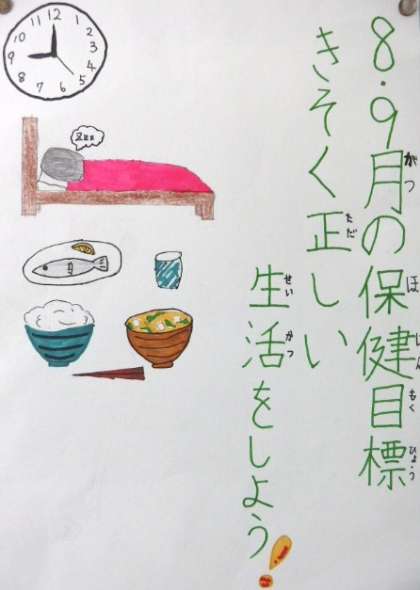 8・9月の保健目標
がつ ほ けん もく ひょう
きそく正しい
ただ
生活をしよう!
せい かつ
12 1 2 3 4 5 6 7 8 9 10 11